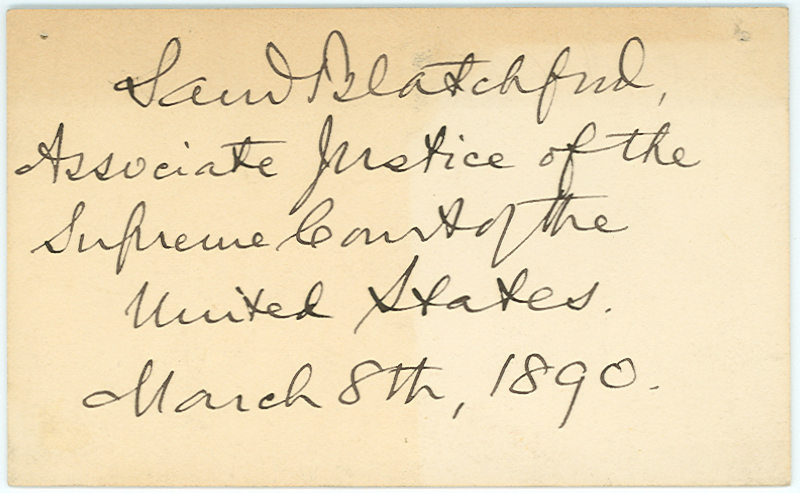 Saml Blatchford,
Associate Justice of the
Supreme Court of the
United States.
March 8th, 1890.